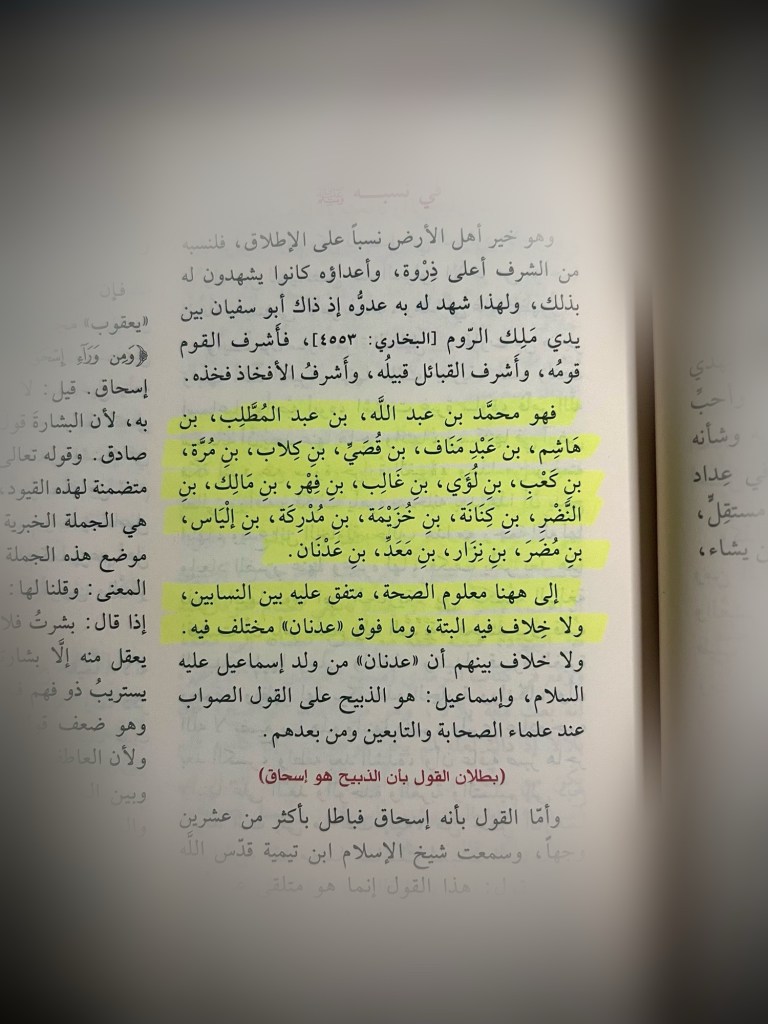 في نسبه ﷺ
وهو خير أهل الأرض نسباً على الإطلاق، فلنسبه
من الشرف أعلى ذِرْوة، وأعداؤه كانوا يشهدون له
بذلك، ولهذا شهد له به عدوُّه إذ ذاك أبو سفيان بين
يدي مَلِك الرّوم [البخاري: ٤٥٥٣]، فأَشرف القوم
قومُه، وأَشرف القبائل قبيلُه، وأَشرفُ الأفخاذ فخذه.
فهو محمَّد بن عبد اللَّه، بن عبد المُطَّلِب، بن
هَاشِم، بن عَبْدِ مَنَاف، بن قُصَيِّ، بنِ كِلاب، بنِ مُرَّة،
بنِ كَعْبِ، بنِ لُؤَي، بنِ غَالِب، بنِ فِهْر، بنِ مَالِك، بنِ
النَّضْرِ، بنِ كِنَانَة، بنِ خُزَيْمَة، بنِ مُدْرِكَة، بنِ إلْيَاس،
بنِ مُضَرَ، بنِ نِزَار، بنِ مَعَدِّ، بنِ عَدْنَان.
إلى ههنا معلوم الصحة، متفق عليه بين النسابين،
ولا خِلاف فيه البتة، وما فوق «عدنان» مختلف فيه.
ولا خلاف بينهم أن «عدنان» من ولد إسماعيل عليه
السلام، وإسماعيل: هو الذبيح على القول الصواب
عند علماء الصحابة والتابعين ومن بعدهم.
(بطلان القول بأن الذبيح هو إسحاق)
وأمّا القول بأنه إسحاق فباطل بأكثر من عشرين
وجهاً، وسمعت شيخ الإسلام ابن تيمية قدّس اللَّه
هذا القول إنما هو متلقى
فإن
«يعقوب»
﴿وَمِن وَرَآءِ
إسحاق. قيل: لا
به، لأن البشارةَ
صادق. وقوله تعالى
متضمنة لهذه القيود
هي الجملة الخبرية
موضع هذه الجملة
المعنى: وقلنا لها:
إذا قال: بشرتُ
يعقل منه إلَّا
يستريبُ ذو فهم
وهو ضعف
ولأن
وبين
يدي
وأحبَّ
وشأنه
عِداد
مستقلٍّ،
يشاء،